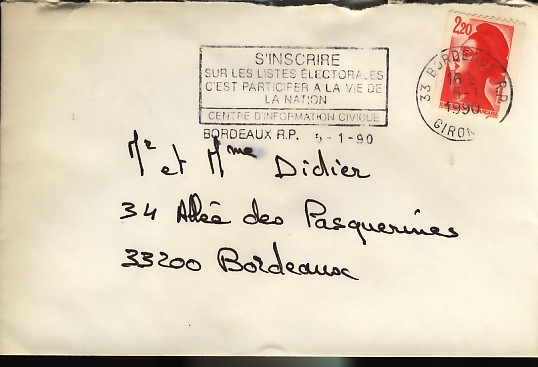 S'INSCRIRE
SUR LES LISTES ÉLECTORALES
C'EST PARTICIPER A LA VIE DE
LA NATION
CENTRE D'INFORMATION CIVIQUE
BORDEAUX R.P. 5-1-90
2,20
33 BORDEAUX R.P.
16
5-1
1990
GIRONDE
Mr et Mme Didier
34 Allée des Pasquerines
33200 Bordeaux